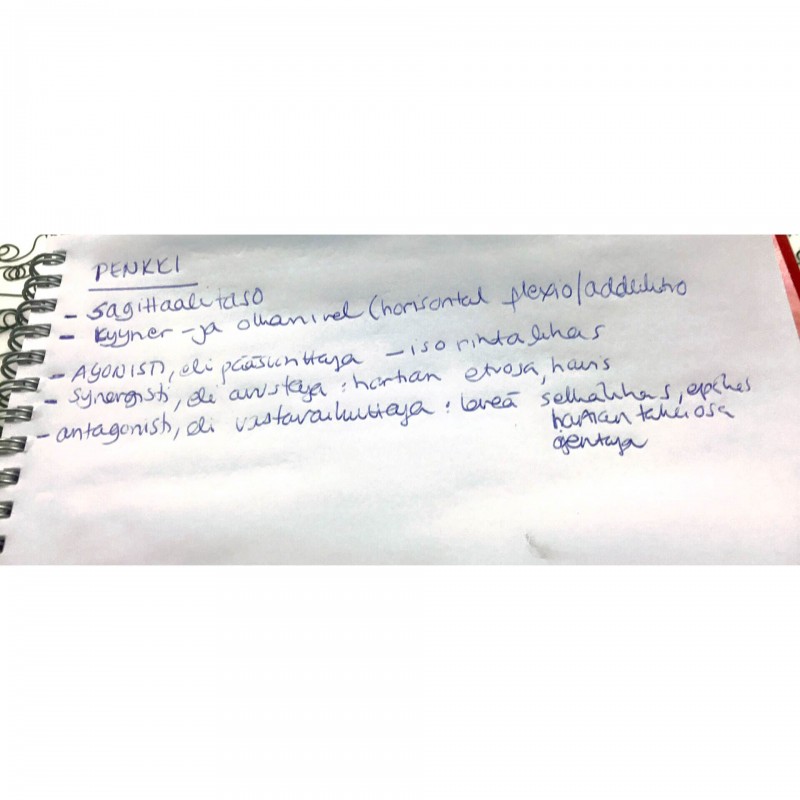 PENKKI
- sagittaalitaso
- kyyner - ja olkanivel (horisontal flexio/adduktio
- AGONISTI, eli pääsuorittaja - iso rintalihas
- synergisti, eli avustaja : hartian etuosa, hauis
- antagonisti, eli vastavaikuttaja : leveä selkälihas, epäkäs
hartian takaosa
ojentaja